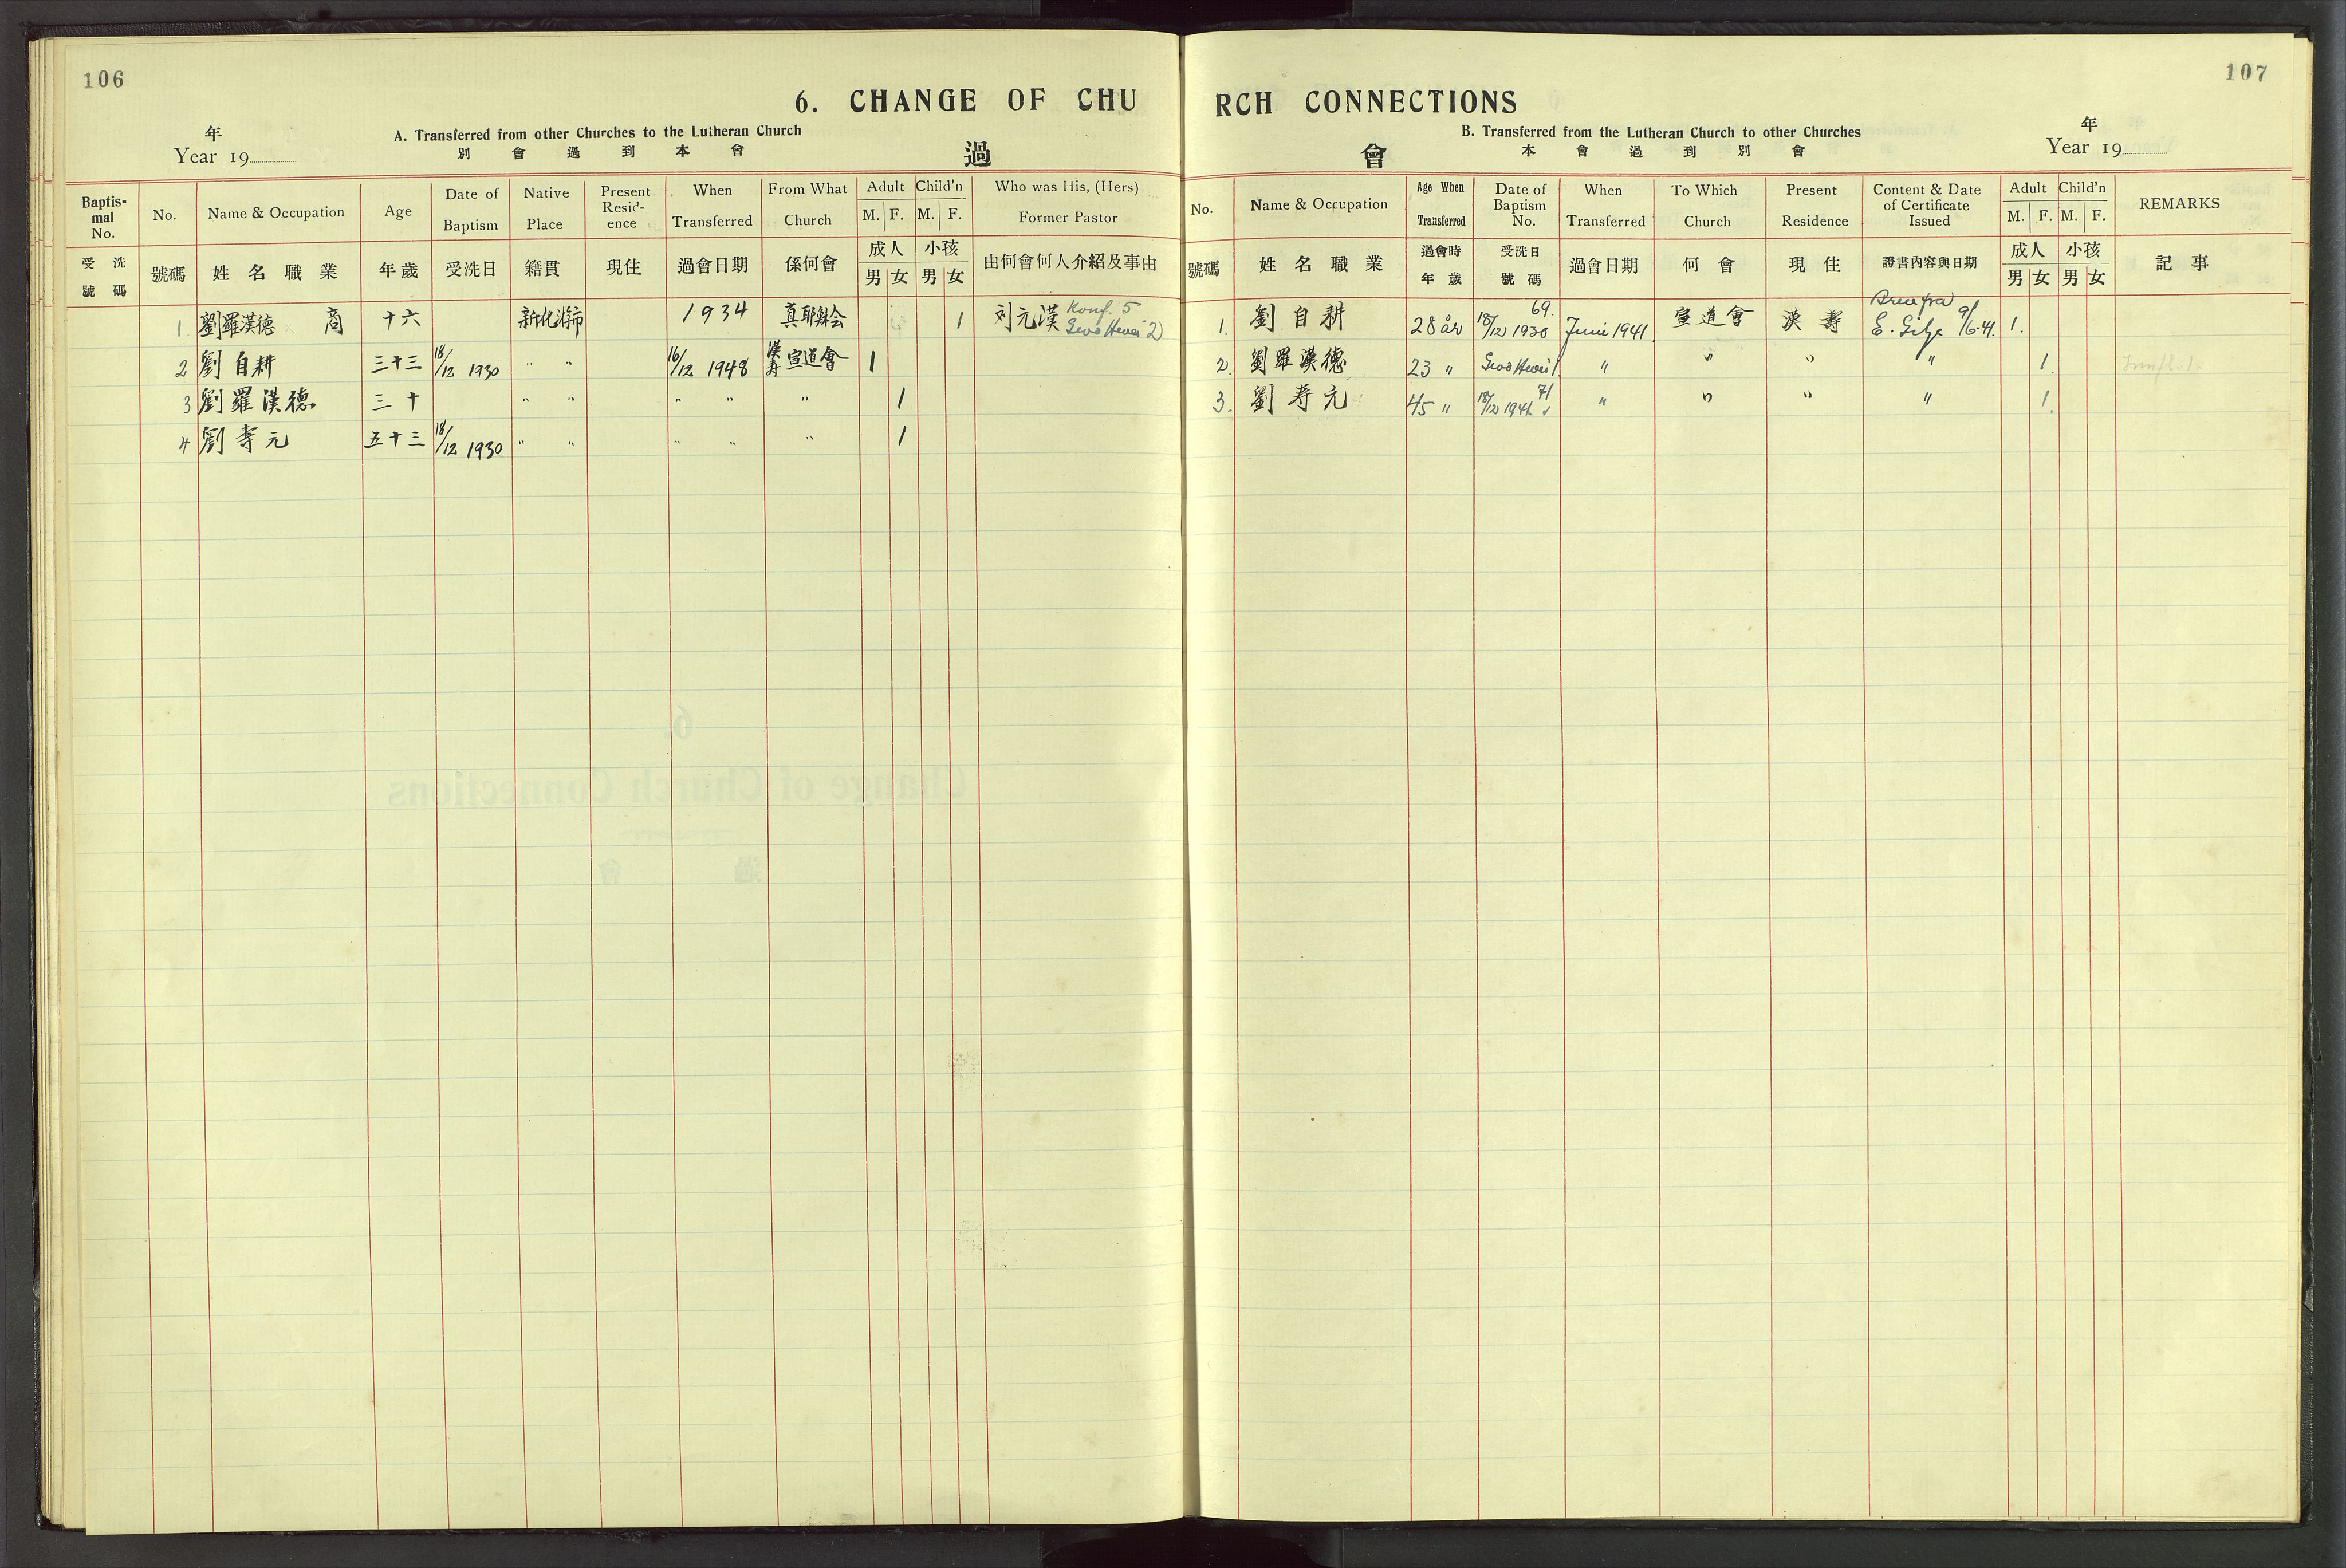 106
6. CHANGE OF CHU
年
Year 19
A. Transferred from other Churches to the Lutheran Church
別 會 過 到 本 會
過
Baptis-mal No. No. Name & Occupation Age Date of Baptism Native Place Present Resid-ence When Transferred From What Church Adult M. F. Child'n M. F. Who was His, (Hers) Former Pastor
受洗號碼 號碼 姓名職業 年歲 受洗日 籍貫 現住 過會日期 係何會 成人 男 女 小孩 男 女 由何會何人介紹及事由
1. 劉羅漢德 商 十六 新化 市 1934 真耶穌会 1 刘元漢 Konf. 5
2
2 劉自耕 三十三 18/12 1930 " " 16/12 1948 漢寿宣道會 1
3 劉羅漢德 三十 " " " " " 1
4 劉寿元 五十三 18/12 1930 " " " " " 1
107
RCH CONNECTIONS
B. Transferred from the Lutheran Church to other Churches
本 會 過 到 別 會
年
Year 19
會
No. Name & Occupation Age When Transferred Date of Baptism No. When Transferred To Which Church Present Residence Content & Date of Certificate Issued Adult M. F. Child'n M. F. REMARKS
號碼 姓名職業 過會時年歲 受洗日號碼 過會日期 何會 現住 證書內容與日期 成人 男 女 小孩 男 女 記事
1. 劉自耕 28 år 18/12 1930 69. Juni 1941. 宣道會 漢壽 E. 9/6-41. 1.
2. 劉羅漢德 23 " " " " " 1.
3. 劉寿元 45 " 18/12 71 " " " " 1.
6.
Change of Church Connections
過 會